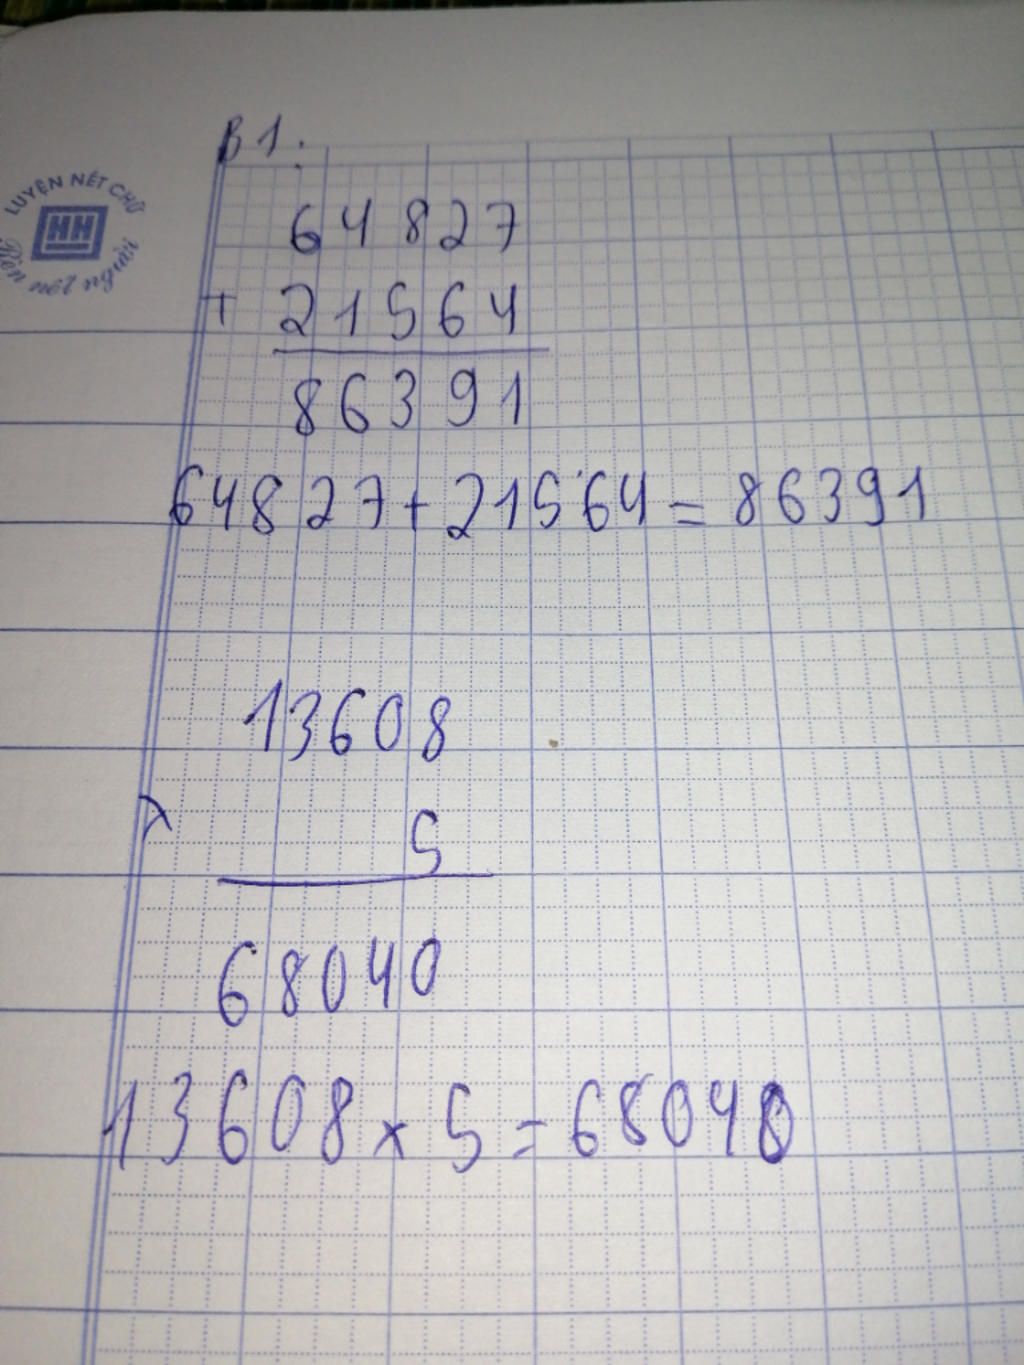 B1:
LUYỆN NÉT CHỮ
HH
64827
+ 21564
86391
64827+21564=86391
13608
x
5
68040
13608 x 5 = 68040